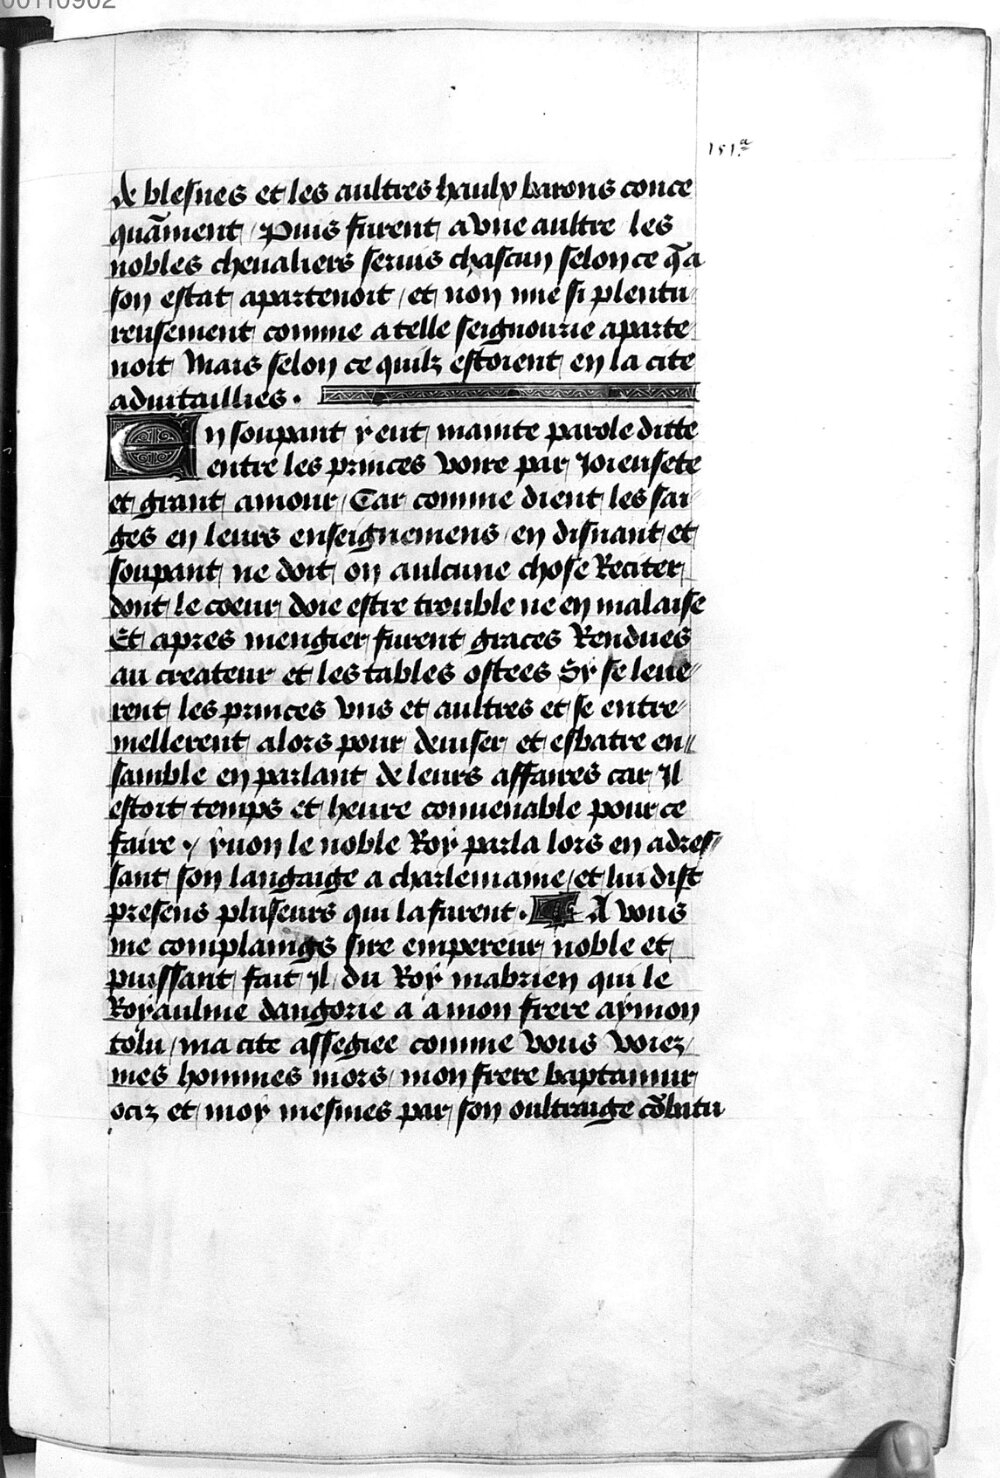 00110902
151.a
de blesues et les aultres haulx barons conce
quāment / Puis furent a vne aultre les
nobles cheualiers seruis chascun selon ce q̄ a
son estat apartenoit / et non mie si plentu
reusement comme a telle seignourie aparte
noit Mais selon ce quilz estoient en la cite
aduitaillies .
En soupant y eut mainte parole ditte
entre les princes voire par Joieusete
et grant amour / Car comme dient les sai
ges en leurs enseignemens / en disnant et
soupant ne doit on aulcune chose Reciter
dont le coeur doie estre trouble ne en malaise
Et apres mengier furent graces Rendues
au createur et les tables ostees Sy se leue
rent les princes vns et aultres et se entre
mellerent alors pour deuiser et esbatre en
samble en parlant de leurs affaires car Jl
estoit temps et heure conuenable pour ce
faire . yuon le noble Roy parla lors en adres
sant son langaige a charlemaine / et lui dist
presens pluseurs qui la furent . A vous
me complaings sire empereur noble et
puissant fait Jl du Roy mabrien qui le
Royaulme dangorie a a mon frere aymon
tolu / ma cite assegiee comme vous voiez
mes hommes mors / mon frere baptamur
ociz et moy mesmes par son oultraige cōbatu